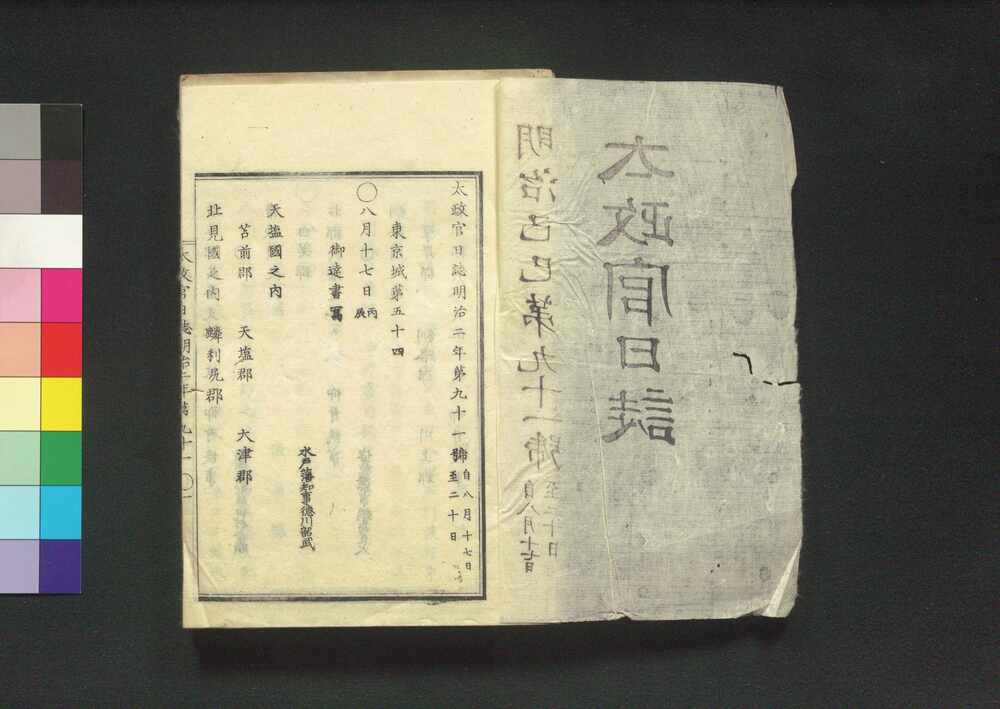 太政官日誌
明治己巳第九十一號 自八月十七日
至二十日
太政官日誌明治二年第九十一號 自八月十七日
至二十日
東京城第五十四
〇八月十七日 丙辰
御達書寫
水戸藩知事德川昭武
天塩國之内
苫前郡 天塩郡
北見國之内
利尻郡
太政官日誌明治二年第九十一 〇一